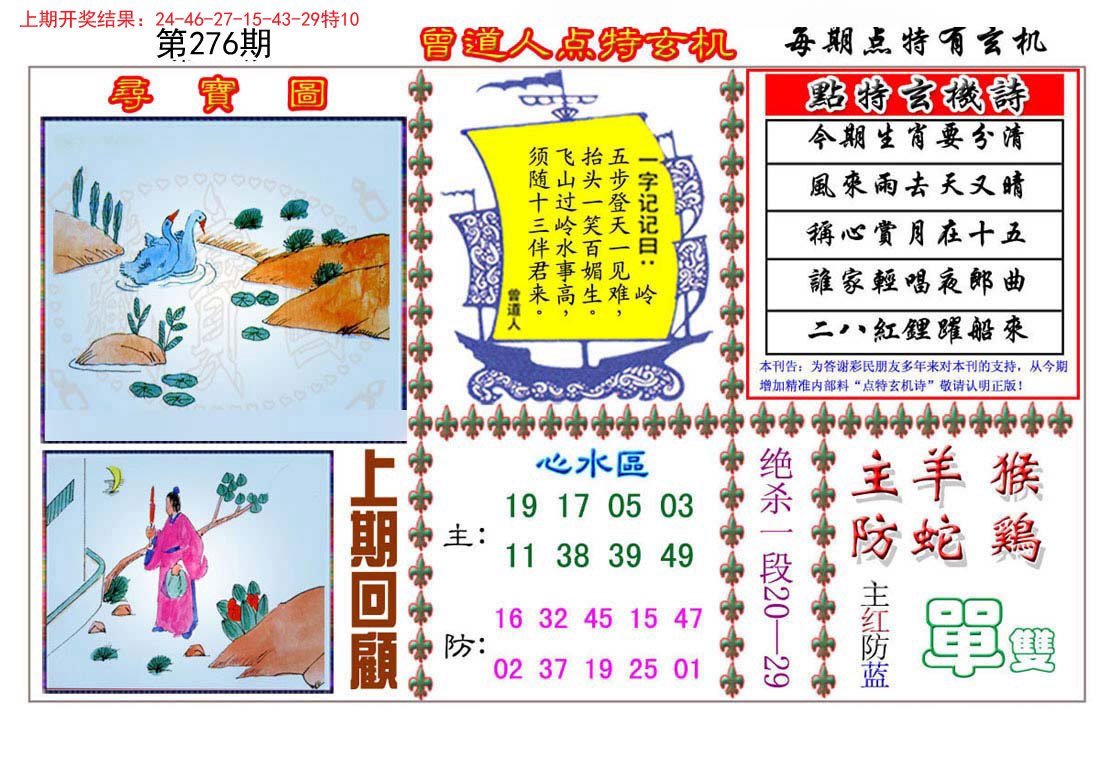 上期开奖结果：24-46-27-15-43-29特10
第276期
曾道人点特玄机
每期点特有玄机
尋寶圖
一字记记曰：岭
五步登天一见难，
抬头一笑百媚生。
飞山过岭水事高，
须随十三伴君来。
曾道人
點特玄機詩
今期生肖要分清
風來雨去天又晴
稱心賞月在十五
誰家輕唱夜郎曲
二八紅鯉躍船來
本刊告：为答谢彩民朋友多年来对本刊的支持，从今期
增加精准内部料“点特玄机诗”敬请认明正版！
上期回顧
心水區
主：
19 17 05 03
11 38 39 49
防：
16 32 45 15 47
02 37 19 25 01
绝杀一段20—29
主羊猴
防蛇鷄
主红防蓝
單雙